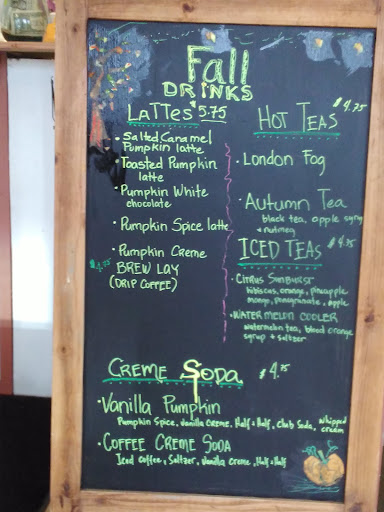 Fall
DRINKS
LATTES 5.75
• Salted Caramel
Pumpkin latte
• Toasted Pumpkin
latte
• Pumpkin White
chocolate
• Pumpkin Spice latte
• Pumpkin Creme
$4.75 BREW LAY
(DRIP COFFEE)
HOT TEAS $4.75
• London Fog
• Autumn Tea
black tea, apple syrup
+ nutmeg
ICED TEAS $4.75
• CITRUS SUNBURST
hibiscus, orange, pineapple
mango, pomegranate, apple
• WATERMELON COOLER
watermelon tea, blood orange
syrup + seltzer
CREME SODA $4.75
• Vanilla Pumpkin
Pumpkin Spice, Vanilla Creme, Half + Half, Club Soda, Whipped
cream
• COFFEE CREME SODA
Iced Coffee, Seltzer, Vanilla Creme, Half + Half